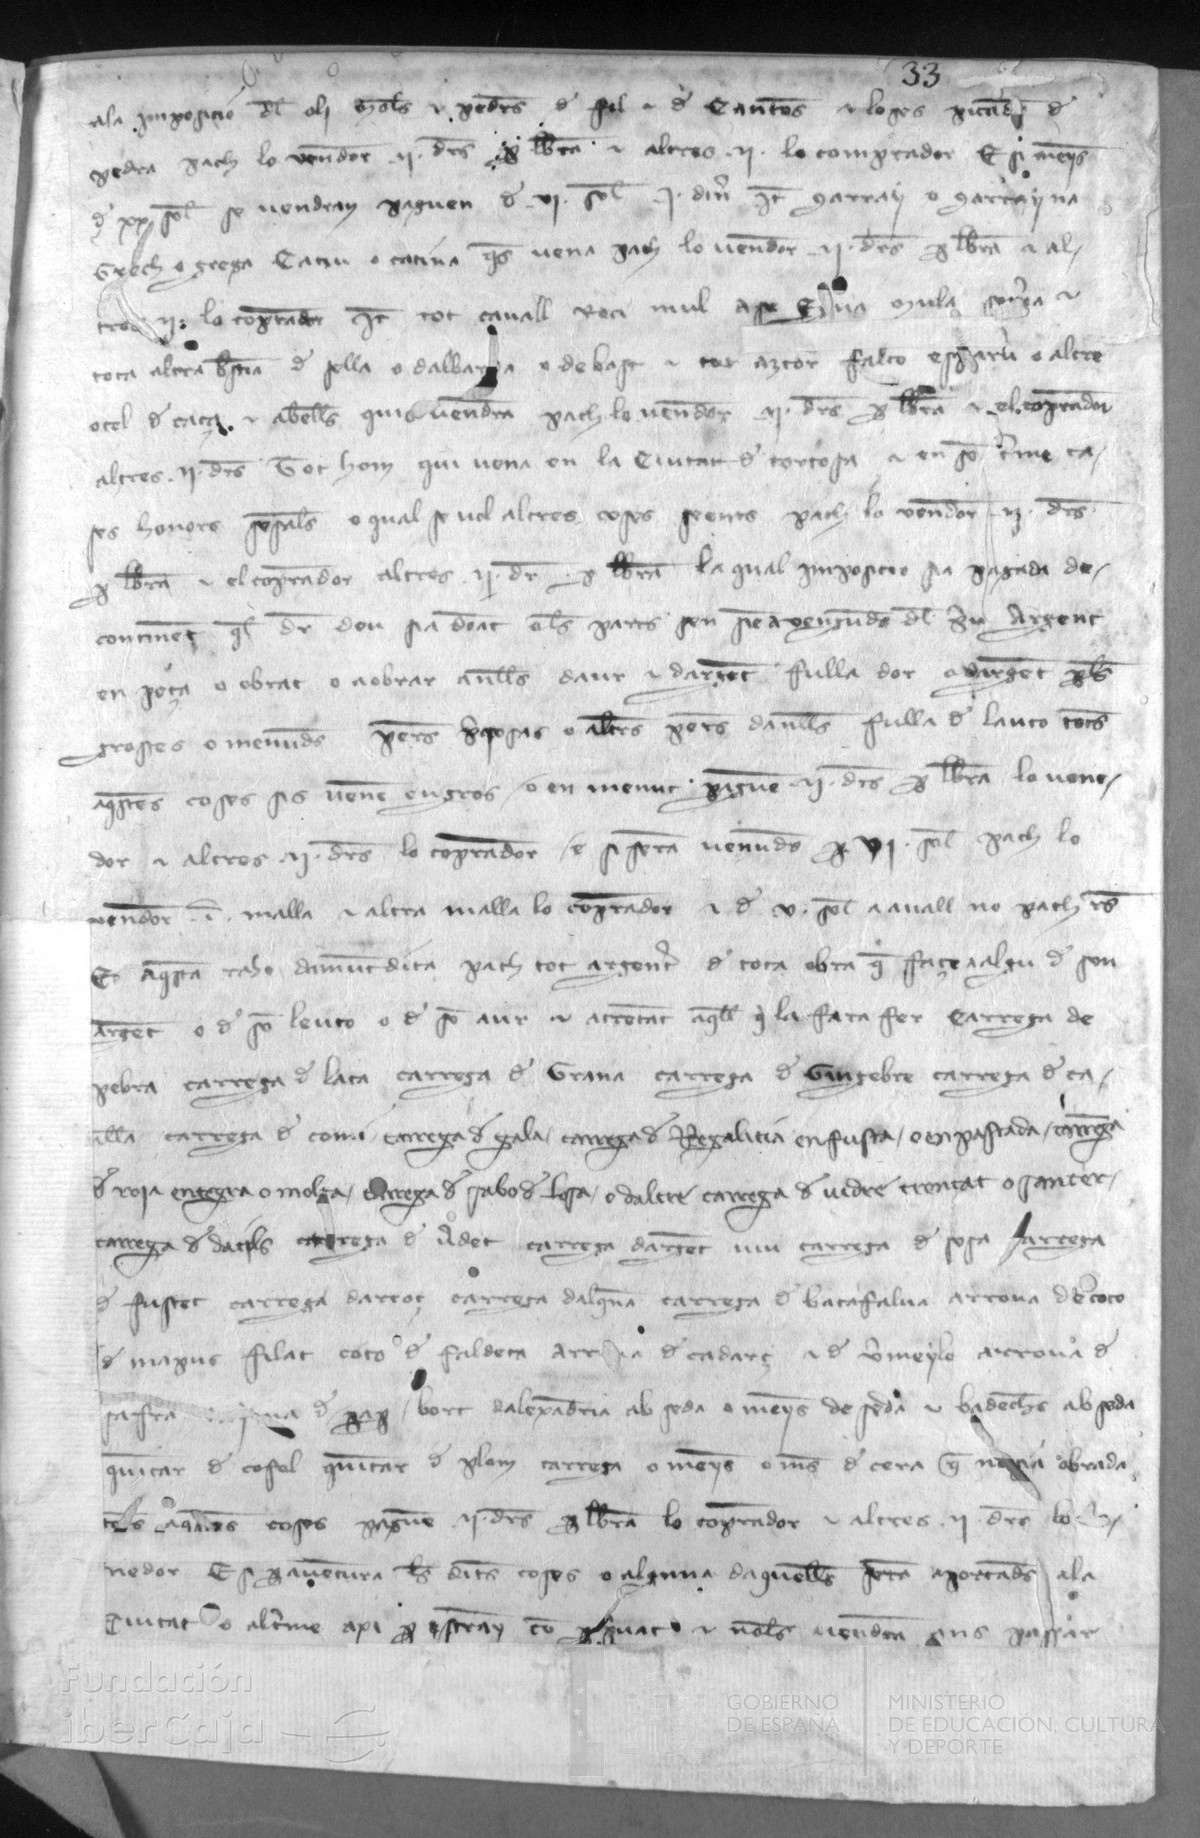 33
ala imposicio dl oli moles e pedres de fil e de Cantos e loses picads de
pedra pach lo vendor .ii. drs p lbra e altres .ii. lo comprador E si meys
de xx sol se vendran paguen de vi. sol .i. diner Jt sarray o sarrayna
Grech o grega Catiu o cativa qs vena pach lo vendor .ii. drs p lbra e al-
tres ii. lo coprador Jt tot cavall roci mul ase Egua mula somera e
tota altra bstia de sella o dalbarda o de bast e tot aztor falco esparver o altre
ocel de caça e abells quis vendra pach lo vendor .ii. drs p lbra e el coprador
altres .ii. drs Tot hom qui vena en la Ciutat de tortosa e en so terme ca-
ses honors sesals o qual se vol altres coses seents pach lo vendor .ii. drs
p lbra e el coprador altres .ii. dr p lbra la qual imposicio sia pagada de-
continent ql dr deu sia donat els parts sen sie avenguds dl preu Argent
en peça o obrat o a obrar anells daur e dargent fulla dor o dargent perles
grosses o menuds pers preposas o altres pers danells fulla de lauto tots
aqstes coses sis venen en gros o en menut paguen .ii. drs p lbra lo vene-
dor e altres .ii. drs lo coprador / e si sera venuds p vi. sol pach lo
vendor .i. malla e altra malla lo coprador e de v. sol a avall no pach res
E aqsta raho damunt dita pach tot argenter de tota obra que façe a algu de son
argent o de so leuto o de so aur e atretat aqll q la fara fer Carrega de
pebra carrega de laca carrega de Grana carrega de Gingebre carrega de ca-
nlla carrega de comi / carrega de gala / carrega de Regalicia en fusta / o en pastada / carrega
de roja entegra o molta / carrega de sabo de losa / o daltre carrega de vidre trencat o sancer /
carrega de datils carrega de verdet carrega dargent viu carrega de sosa carrega
de fustet carrega darroç carrega dalquena carrega de batafalua arrova de coto
de mapus filat coto de faldeta arrova de cadarç e de vermeylo arrova de
safra de / bort dalexandria ab seda o meys de seda e badechs ab seda
quintar de cofol quintar de plom carrega o meys o mes de cera obrada
tots aquestes coses paguen .ii. drs p lbra lo coprador e altres .ii. drs lo ve-
nedor E si p aventura les dits coses o alguna daquelles sera aportads a la
Ciutat o al terme axi p estrany co p privat e nols vendra ans passar
Fundación
iberCaja
GOBIERNO
DE ESPAÑA
MINISTERIO
DE EDUCACIÓN, CULTURA
Y DEPORTE